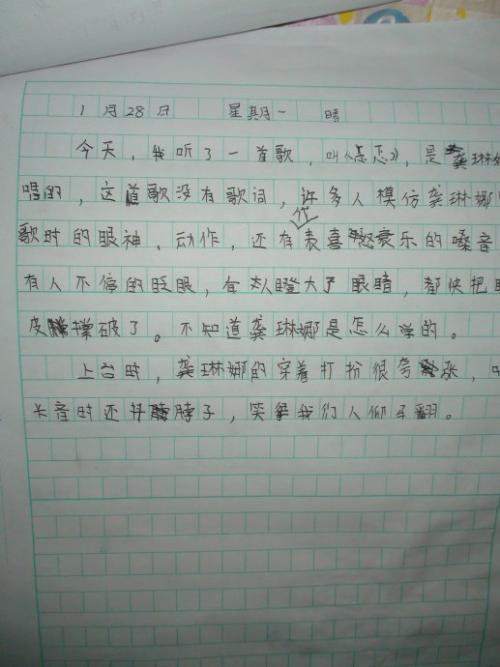 1月28日 星期一 晴
今天，我听了一首歌，叫《忐忑》，是龚琳娜
唱的，这首歌没有歌词，许多人模仿龚琳娜
歌时的眼神，动作，还有代表喜怒哀乐的嗓音
有人不停的眨眼，有人瞪大了眼睛，都快把眼
皮撑破了。不知道龚琳娜是怎么学的。
上台时，龚琳娜的穿着打扮很夸张，
长音时还抖脖子，笑得我们人仰马翻。